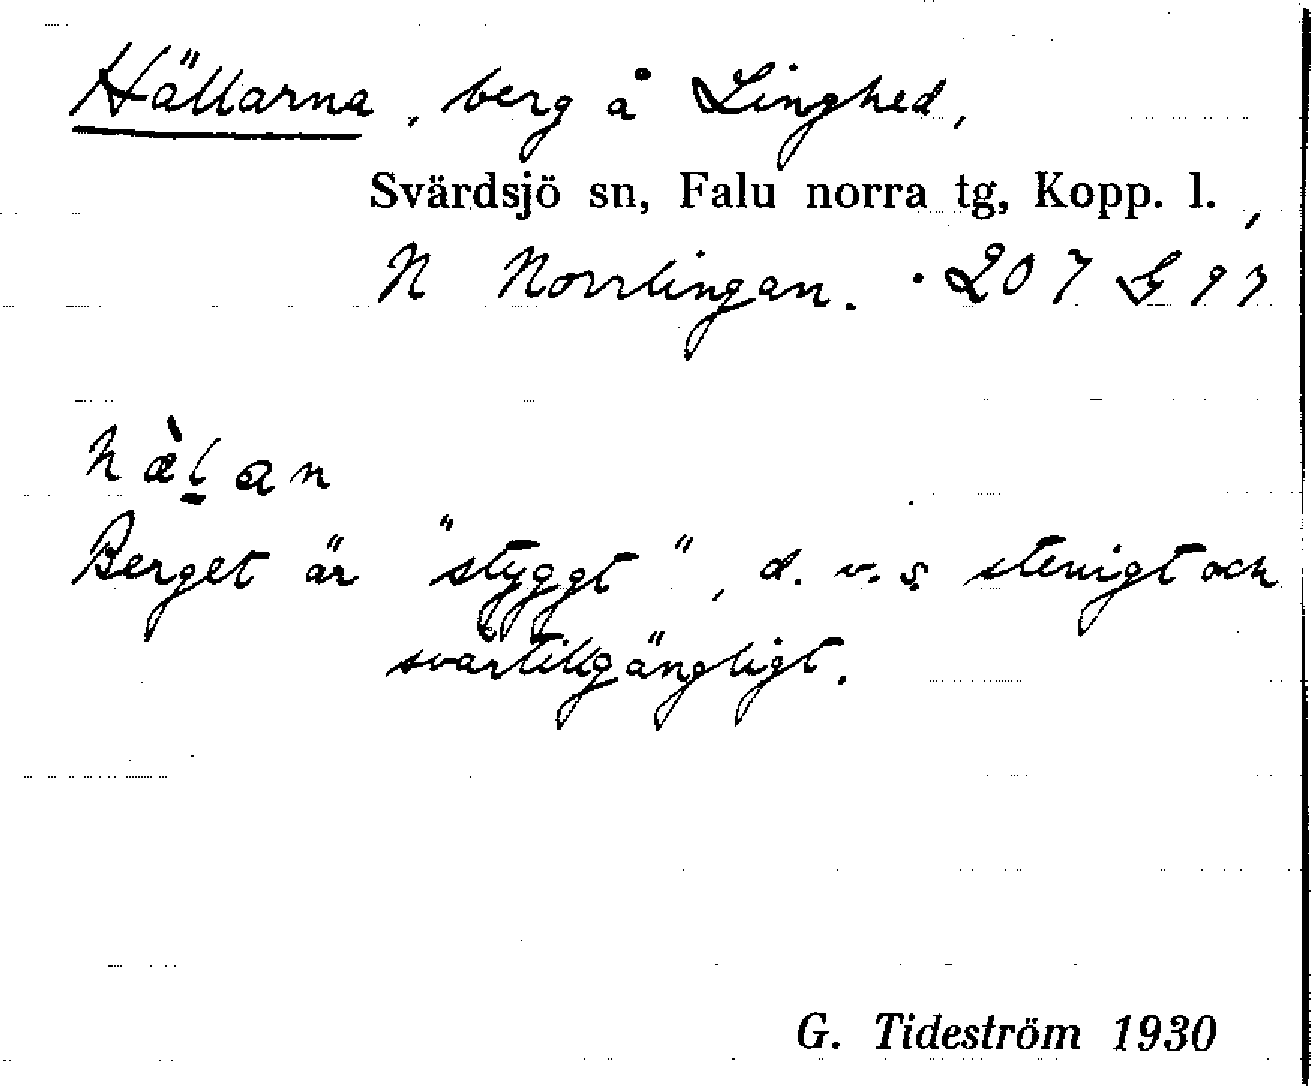 Hällarna, berg å Linghed,
Svärdsjö sn, Falu norra tg, Kopp. l.,
N Norrlingan. · 207 G 97
hæ̀l̠an
Berget är "styggt", d.v.s. stenigt och
svårtillgängligt.
G. Tideström 1930